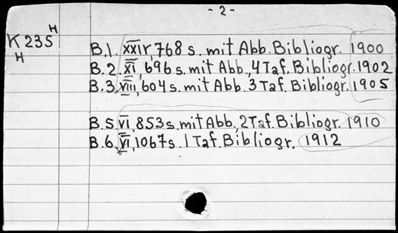 - 2 -
K 235 H
H
B.1. XXIV, 768 s. mit Abb. Bibliogr. 1900
B.2. XI, 696 s. mit Abb., 4 Taf. Bibliogr. 1902
B.3. VIII, 604 s. mit Abb. 3 Taf. Bibliogr. 1905
B.5. VI, 853 s. mit Abb., 2 Taf. Bibliogr. 1910
B.6. VI, 1067 s. 1 Taf. Bibliogr. 1912